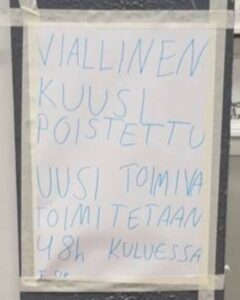 VIALLINEN
KUUSI
POISTETTU
UUSI TOIMIVA
TOIMITETAAN
48h KULUESSA